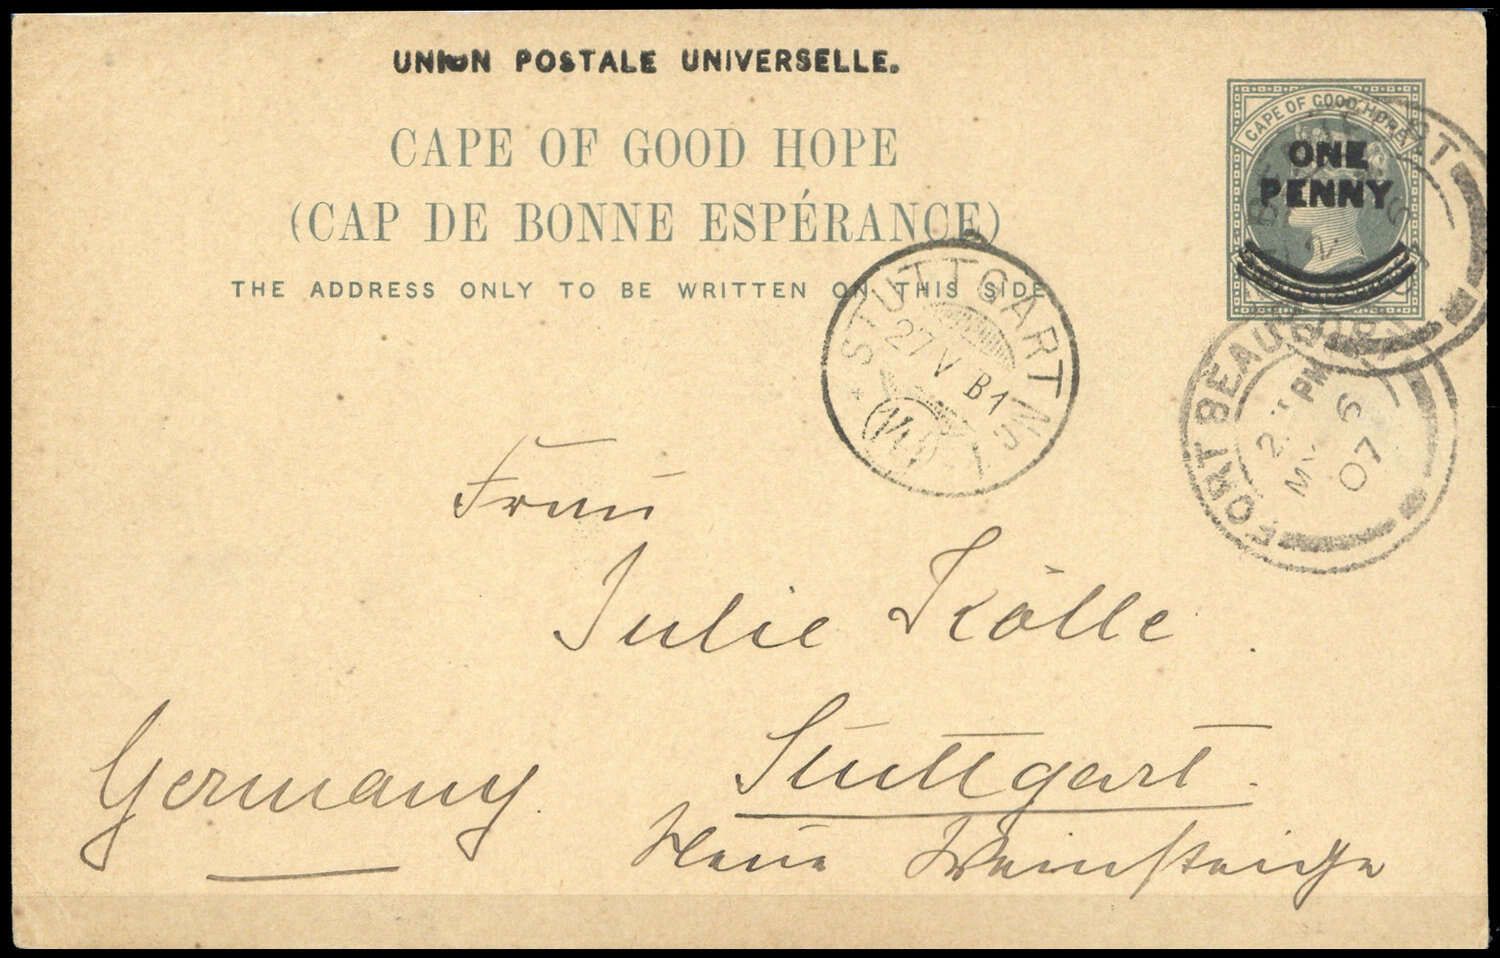 UNION POSTALE UNIVERSELLE.
CAPE OF GOOD HOPE
(CAP DE BONNE ESPÉRANCE)
THE ADDRESS ONLY TO BE WRITTEN ON THIS SIDE
CAPE OF GOOD HOPE
ONE
PENNY
STUTTGART No
27 V B1
FORT BEAUFORT
PM
MY 6
07
Frau
Julie Kölle.
Stuttgart.
Germany.
Neue Weinsteige